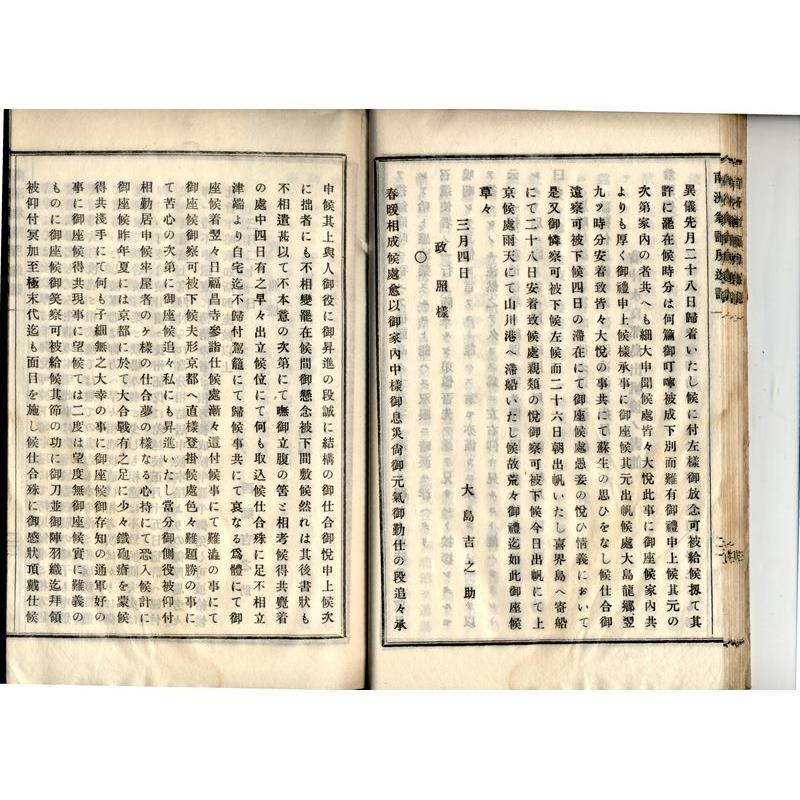 異儀先月二十八日歸着いたし候に付左樣御放念可被給候扨て其
許に滯在候時分は何篇御叮嚀被成下別而難有御禮申上候其元の
次第家内の者共へも細大申聞候處皆々大悅此事に御座候家内共
よりも厚く御禮申上候樣承事に御座候其元出帆候處大島龍鄕翌
九ッ時分安着致皆々大悅の事共にて蘇生の思ひをなし候仕合御
遠察可被下候四日の滯在にて御座候處愚妾の悅ひ情義において
是又御憐察可被下候左候而二十六日朝出帆いたし喜界島へ寄船
にて二十八日安着致候處親類の悅御察可被下候今日出帆にて上
京候處雨天にて山川港へ滯船いたし候故荒々御禮迄如此御座候
草々
三月四日
大島吉之助
政照樣
〇
春暖相成候處愈以御家内中樣御息災尙御元氣御勤仕の段追々承
申候其上與人御役に御昇進の段誠に結構の御仕合御悅申上候次
に拙者にも不相變罷在候間御懸念被下間敷候然れは其後書狀も
不相遣甚以て不本意の次第にて嘸御立腹の筈と相考候得共覺着
の處中四日有之早々出立候位にて何も取込候仕合殊に足不相立
津端より自宅迄不歸付駕籠にて歸候事共にて哀なる爲體にて御
座候着翌々日福昌寺參詣仕候處漸々這付候事にて難澁の事にて
御座候御察可被下候夫形京都へ直樣登掛候處色々難題勝の事に
て苦心の次第に御座候追々私にも昇進いたし當分御側役被仰付
相勤居申候牢屋者のケ樣の仕合夢の樣なる心持にて恐入候計に
御座候昨年夏には京都に於て大合戰有之足に少々鐵砲瘡を蒙候
得共淺手にて何も子細無之大幸の事に御座候御存知の通軍好の
事に御座候得共現事に望候ては二度は望度無御座候實に難義の
ものに御座候御笑察可被給候其節の功に御刀並御陣羽織迄拜領
被仰付冥加至極末代迄も面目を施し候仕合殊に御感狀頂戴仕候